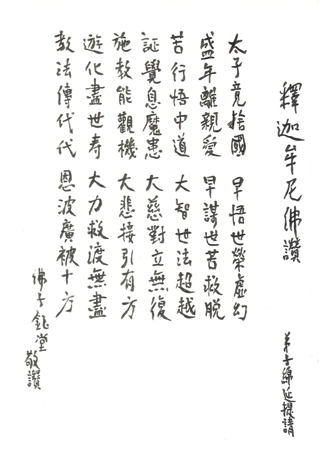 釋迦牟尼佛讚
弟子 延 請
太子竟捨國 早悟世榮虛幻
盛年離親愛 早謀世苦救脫
苦行悟中道 大智世法超越
証覺息魔患 大慈對立無復
施教能觀機 大悲接引有方
遊化盡世壽 大力救渡無盡
教法傳代代 恩波廣被十方
佛子鈺堂敬讚